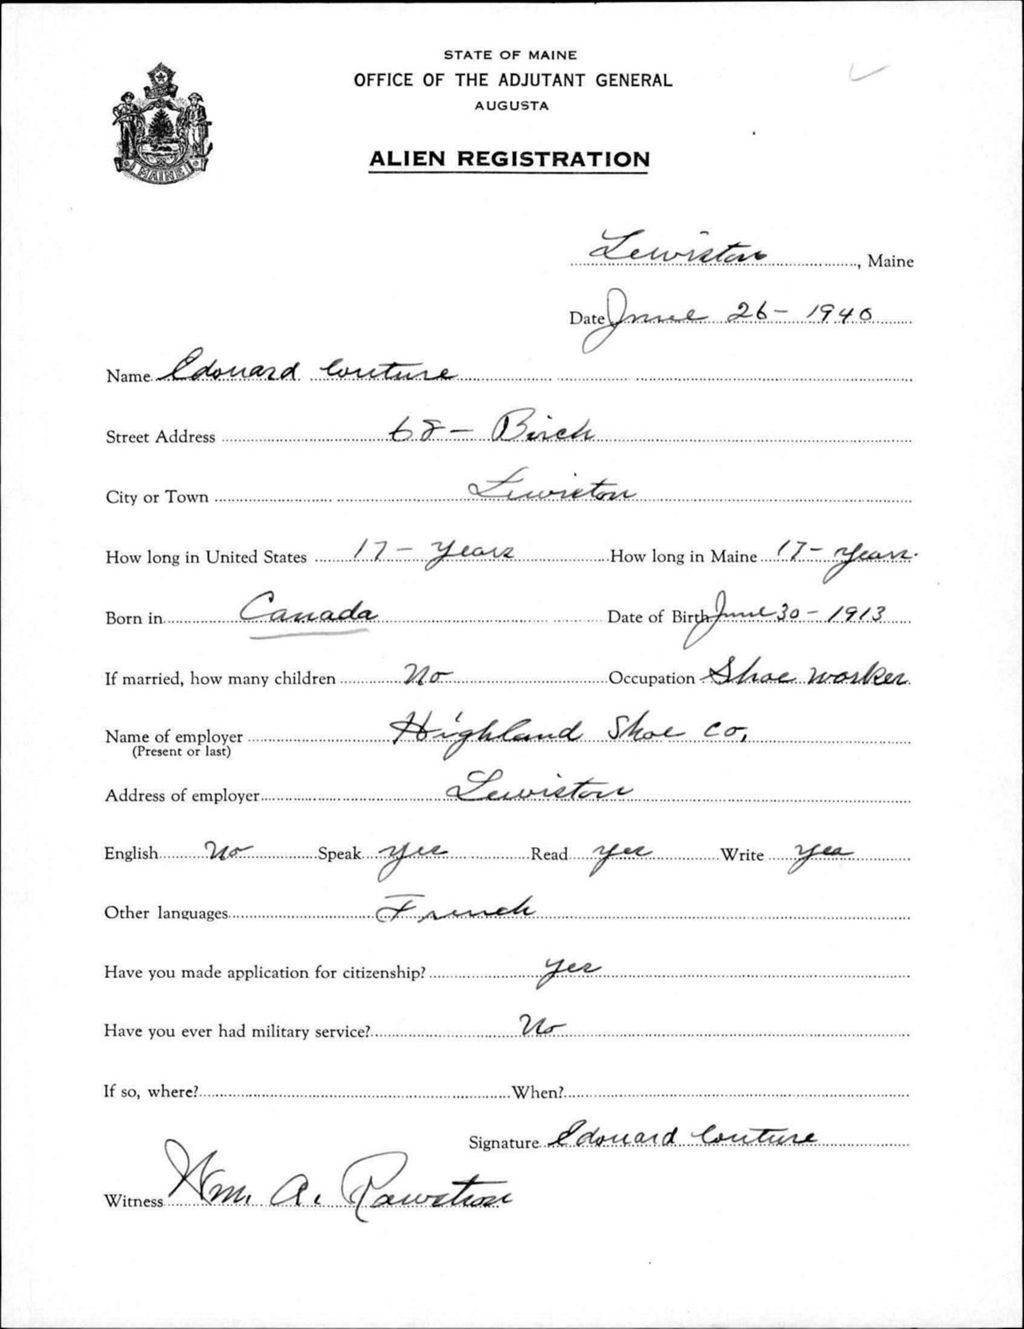 STATE OF MAINE
OFFICE OF THE ADJUTANT GENERAL
AUGUSTA
ALIEN REGISTRATION
MAINE
Lewiston, Maine
Date June 26 - 1940
Name Edouard Couture
Street Address 68 - Birch
City or Town Lewiston
How long in United States 17 - Years How long in Maine 17 - Years
Born in Canada Date of Birth June 30 - 1913
If married, how many children No Occupation Shoe worker
Name of employer Highland Shoe Co,
(Present or last)
Address of employer Lewiston
English No Speak yes Read yes Write yes
Other languages French
Have you made application for citizenship? Yes
Have you ever had military service? No
If so, where? When?
Signature Edouard Couture
Witness Wm. A. Rawstron